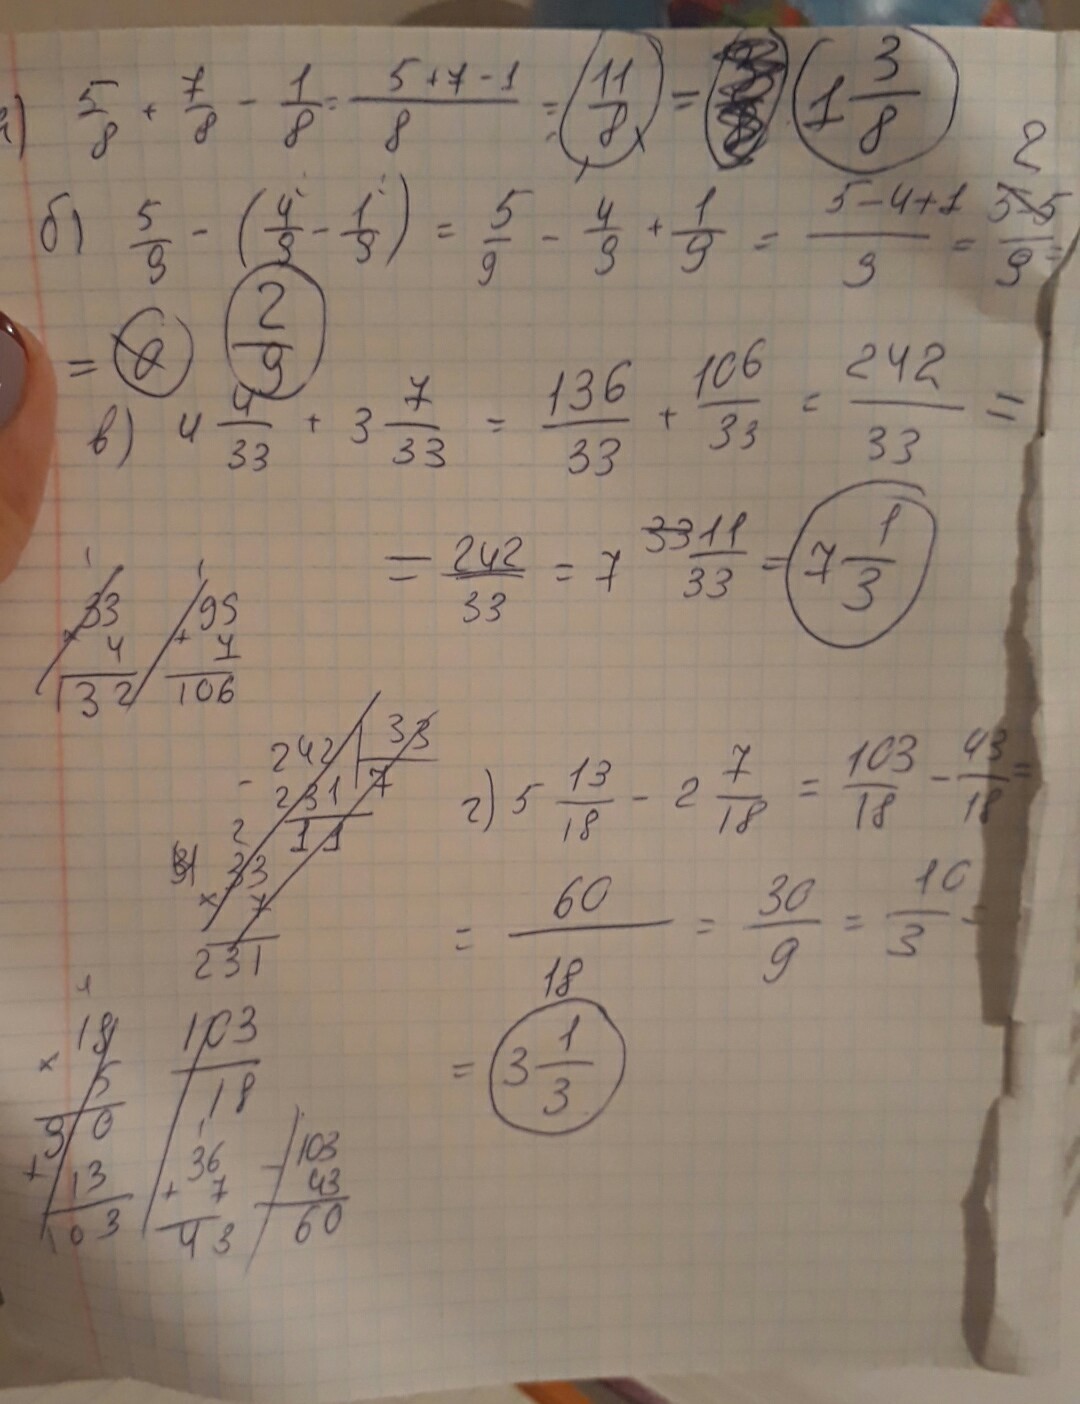 а) 5/8 + 7/8 - 1/8 = (5+7-1)/8 = 11/8 = 1 3/8
б) 5/9 - (4/9 - 1/9) = 5/9 - 4/9 + 1/9 = (5-4+1)/9 = 2/9 =
= 2/9
в) 4 4/33 + 3 7/33 = 136/33 + 106/33 = 242/33 =
= 242/33 = 7 11/33 = 7 1/3
33 × 4 = 132
99 + 7 = 106
242 | 33
- 231 | 7
11
33 × 7 = 231
г) 5 13/18 - 2 7/18 = 103/18 - 43/18 =
= 60/18 = 30/9 = 10/3 =
= 3 1/3
18 × 5 = 90
+ 13
103
103/18
36 + 7 = 43
103 - 43 = 60